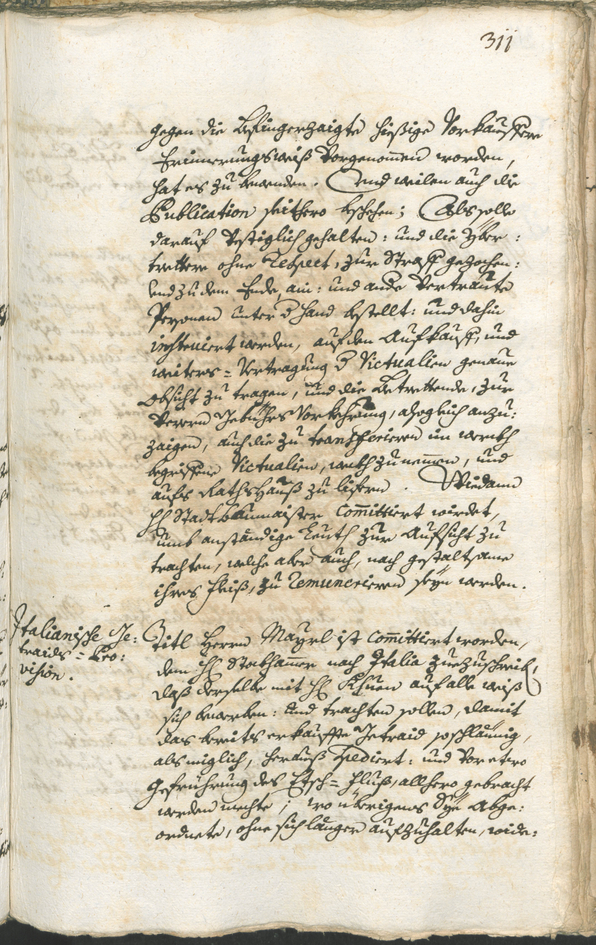 311
gegen die beÿingerzaigte hießige Vorkauffere
Erinnerungsweiß vorgenommen worden,
hat es zu bewenden. Und weilen auch die
Publication seithero beschehen; Als solle
darauf vestiglich gehalten: und die Yber:
trettere ohne Respect, zur Straff gezochen:
und zu dem Ende, ain: und andre Vertraute
Persohnen unter der Hand bestellt: und dahin
instruiert werden, auf den Aufkauff, und
weiters = Vertragung der Victualien genaue
Obsicht zu tragen, und die Betrettende, zur
Vorkehrung, alsogleich anzu:
zaigen, auch die zu transferieren im werkh
begriffene Victualien, wekhzunemmen, und
aufs Rathshauß zu lifern. Wie dann
H: Stadtbaumaister Committiert wirdet,
umb anständige Leuth zur Aufsicht zu
trachten, welche aber auch, nach gestaltsame
ihres Fleiß, zu Remunerieren seyn werden.
Italianische Ge:
traids = Pro:
vision.
Titl Herrn Mayrl ist committiert worden,
dem H: nach Italia zuezuschreib:
daß derselbe mit H: Khuen auf alle weiß
sich bewerben: und trachten sollen, damit
das bereits erkauffte Getraid so schleunig,
als möglich, herauß spediert: und vor etwo
gefrührung des Etsch = Fluß, allhero gebracht
werden mechte; wo übrigens Sye Abge:
ordnete, ohne sich länger aufzuhalten, wide: